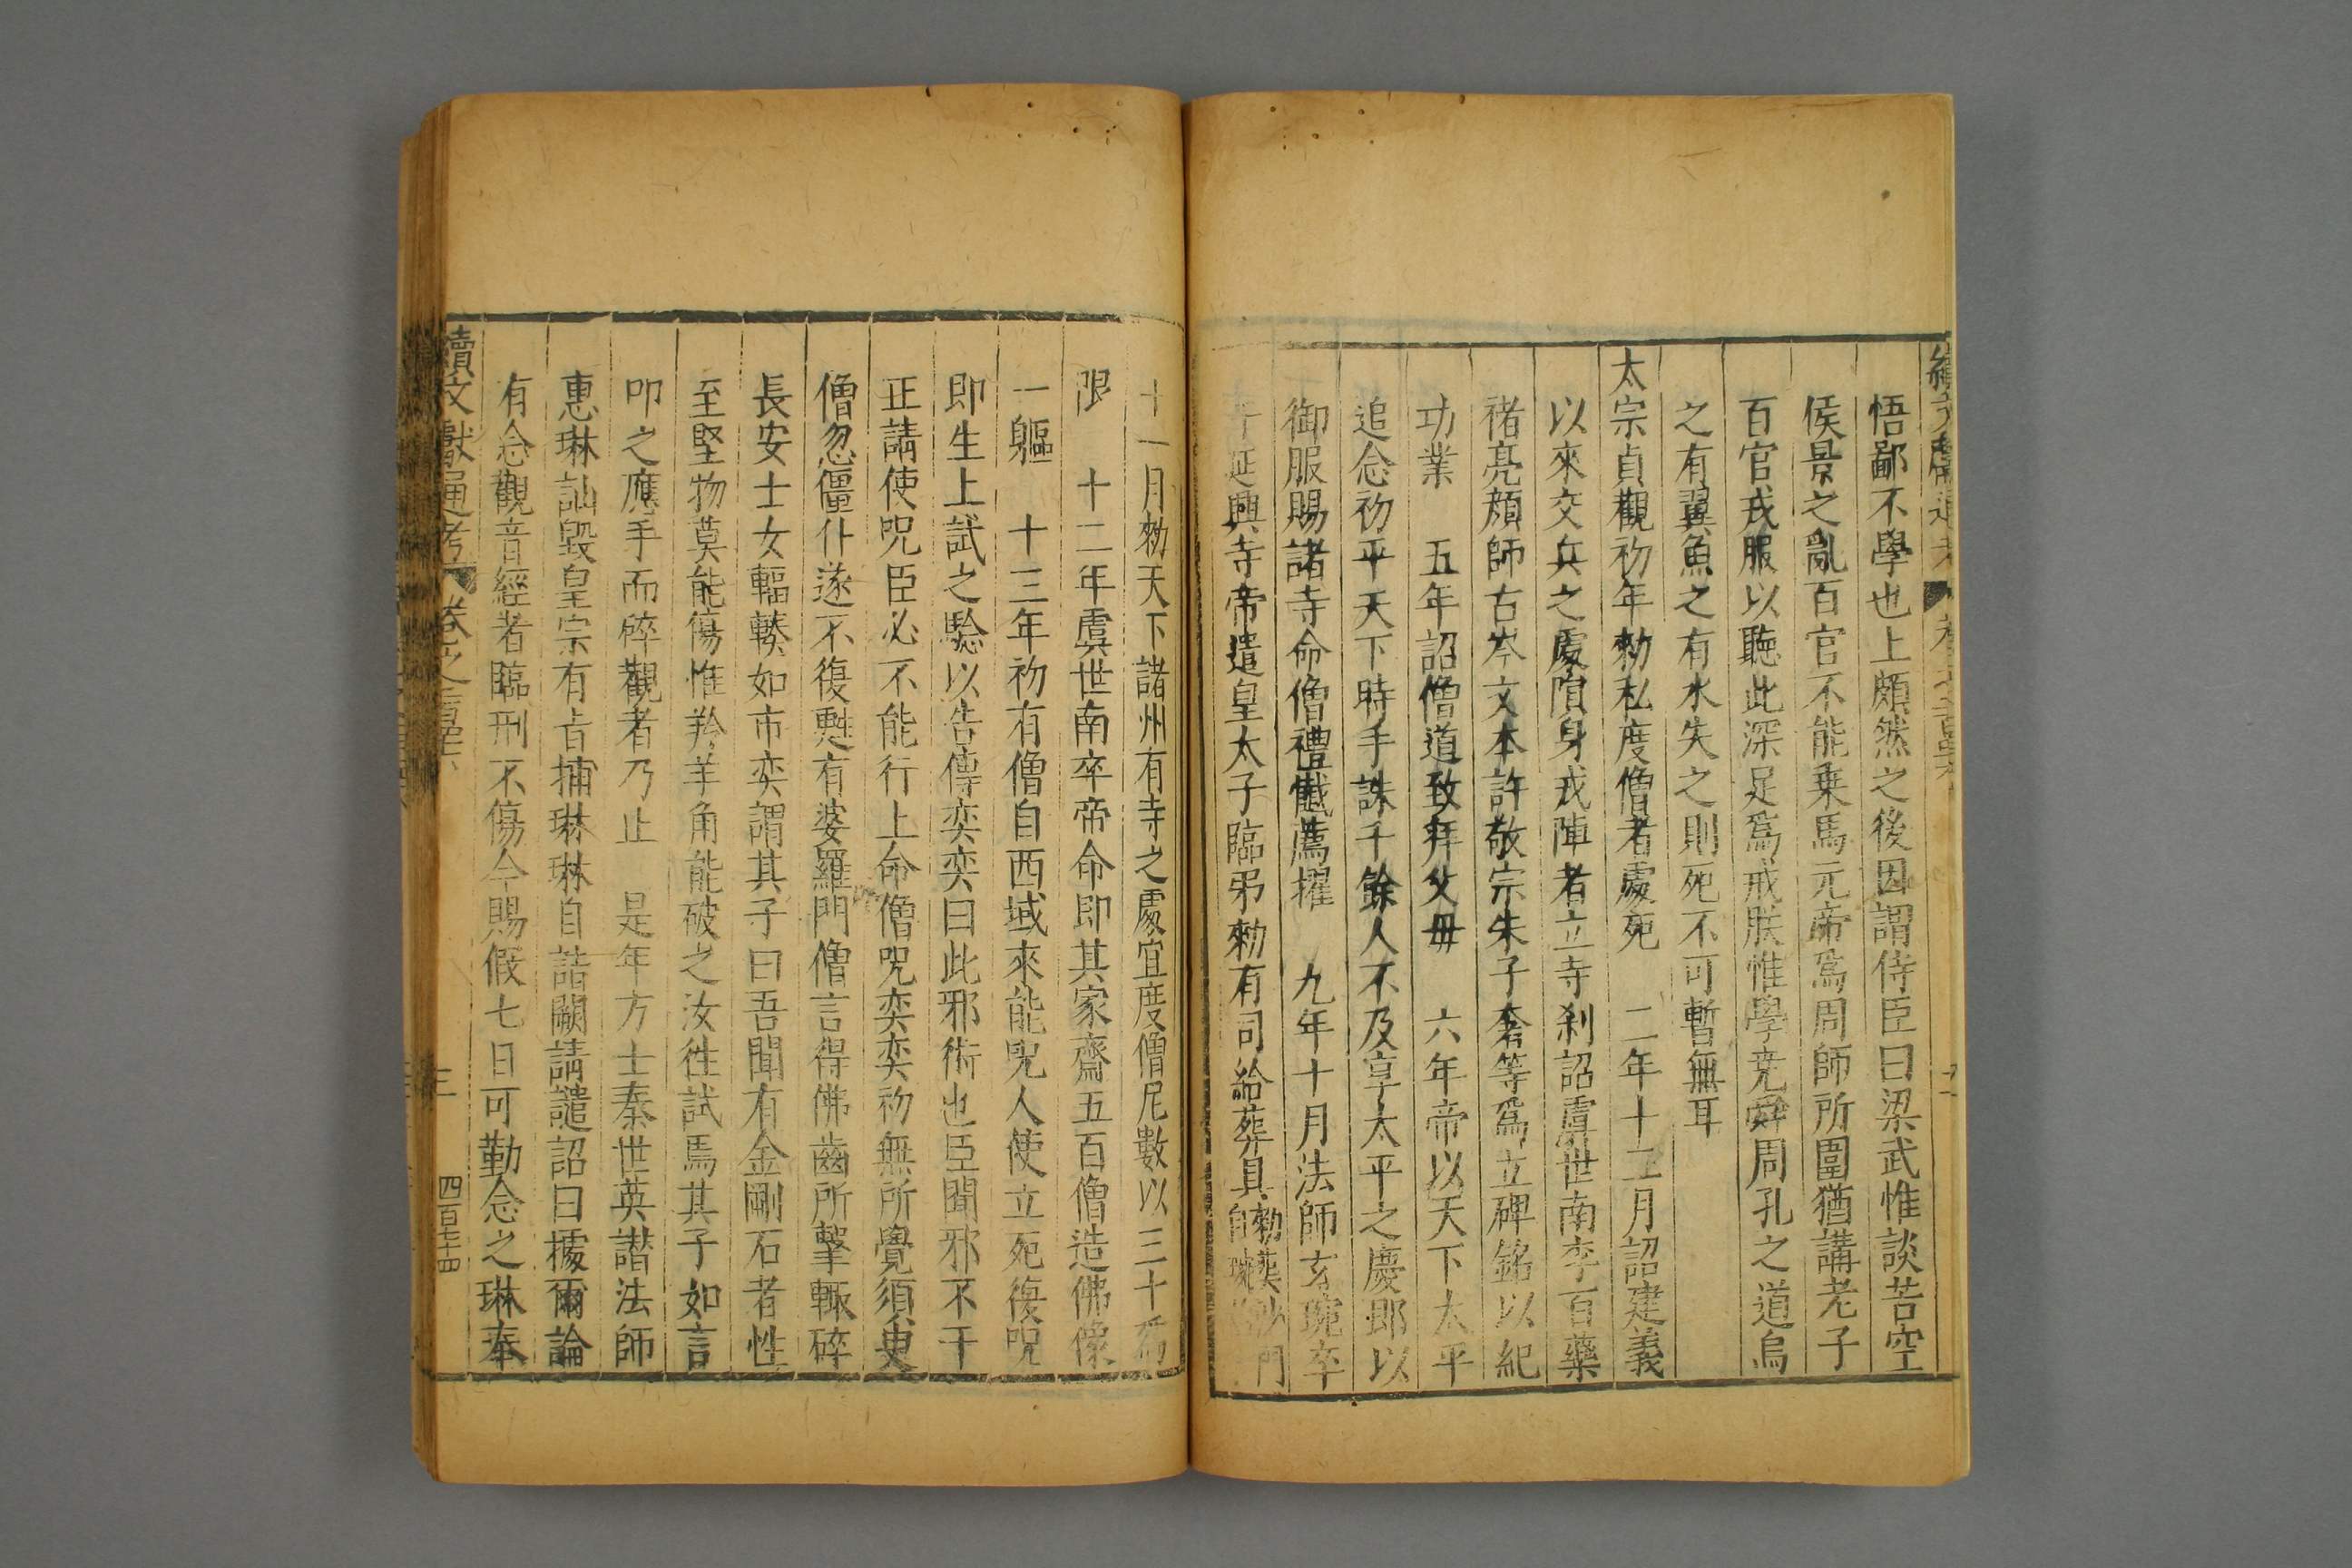 悟鄙不學也上頗然之後因謂侍臣曰梁武惟談苦空
侯景之亂百官不能乗馬元帝爲周師所圍猶講老子
百官戎服以聽此深足爲戒朕惟學尭舜周孔之道烏
之有翼魚之有水失之則死不可暫無耳
太宗貞觀初年勑私度僧者處死　二年十二月詔建義
以來交兵之處隕身戎陣者立寺刹詔虞世南李百藥
褚亮顔師古岑文本許敬宗朱子奢等爲立碑銘以紀
功業　五年詔僧道致拜父毋　六年帝以天下太平
追念初平天下時手誅千餘人不及享太平之慶郎以
御服賜諸寺命僧禮懺薦擢　九年十月法師玄琬卒
延興寺帝遣皇太子臨弔勑有司給葬具勑葬沙門自琬
十一月勑天下諸州有寺之處宜度僧尼數以三十爲
限　十二年虞世南卒帝命即其家齋五百僧造佛像
一軀　十三年初有僧自西域來能呪人使立死復呪
即生上試之驗以告傳奕奕曰此邪術也臣聞邪不干
正請使呪臣必不能行上命僧呪奕奕初無所覺須臾
僧忽僵仆遂不復甦有婆羅門僧言得佛齒所擊輒碎
長安士女輻輳如市奕謂其子曰吾聞有金剛石者性
至堅物莫能傷惟羚羊角能破之汝徃試焉其子如言
叩之應手而碎觀者乃止　是年方士秦世英譖法師
惠琳訕毀皇宗有㫖捕琳琳自詣闕請譴詔曰據爾論
有念觀音經者臨刑不傷今賜假七日可勤念之琳奉
續文獻通考　卷之　三　四百七十四